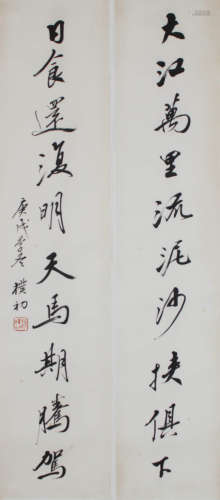 大江萬里流泥沙挾俱下
日食還復明天馬期騰駕
庚戌季冬 樸初